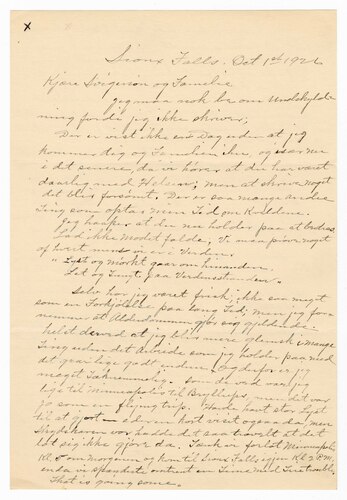 x
Sioux Falls. Oct 1st 192
Kjære Svigersøn og Familie
jeg maa nok be om Undskyld-
ning fordi jeg ikke skriver,
Der er vist ikke en Dag uden at jeg
kommer dig og Familien ihu, og især nu
i det senere, da vi hører at du har været
daarlig med Helsen; men at skrive noget
det blir forsømt. Der er saa mange andre
Ting som optar men Tid om Kveldene.
Jeg haaper at du nu holder paa at bedres
lad ikke Modet falde, Vi maa prøve noget
af hvert mens vi er i Verden.
"Lyst og mørkt gaar om hinanden.
Let og Tungt, paa Verdens
Selv har jeg varet frisk, ikke saa meget
som en Forkjølelse paa lang Tid, men jeg
mer at Alderdommen gjør sig gjeldende
helst derved at jeg blir mere glemsk i mange
Ting uden det Arbeide som jeg holder paa med
det gaar lige godt endnu. Og derfor er jeg
meget taknemmelig. Som du ved var jeg
lige til Minneapolis til Bryllups, men det var
jo som en flying trip. Havde hat stor Lyst
til at gjort en kort visit ogsaa da, men
havde det saa travelt at det
lot sig ikke gjøre da. Tænk at forlot Minneapolis
Kl. 7 om morgenen og kom til Sioux Falls igjen Kl 2 P.M.
enda vi spendte omtrent en Time med Tiretrouble,
That is going some.